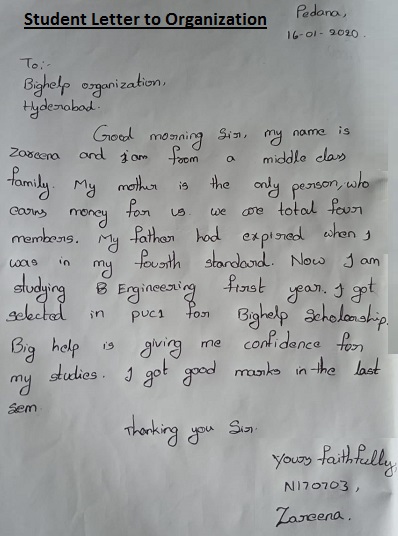 Student Letter to Organization
Pedana,
16-01-2020.
To:-
Bighelp organization,
Hyderabad.
Good morning Sir, my name is
Zareena and iam from a middle class
family. My mother is the only person, who
earns money for us. we are total four
members. My father had expired when I
was in my fourth standard. Now I am
studying B Engineering first year. I got
selected in puc1 for Bighelp Scholarship.
Big help is giving me confidence for
my studies. I got good marks in the last
sem.
Thanking you Sir.
Yours faithfully,
N170703,
Zareena.